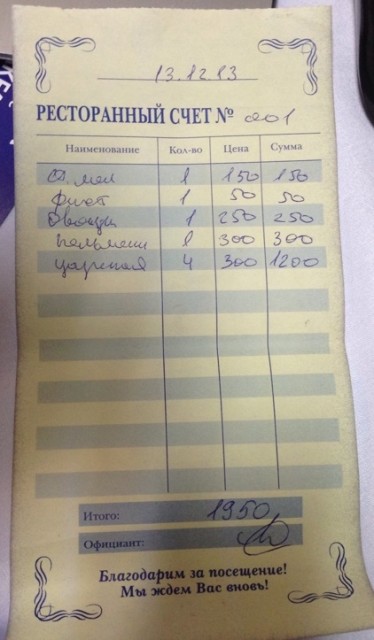 13.12.13
РЕСТОРАННЫЙ СЧЕТ № 001
Наименование Кол-во Цена Сумма
1 150 150
1 50 50
Овощи 1 250 250
пельмени 1 300 300
царская 4 300 1200
Итого: 1950
Официант:
Благодарим за посещение!
Мы ждем Вас вновь!